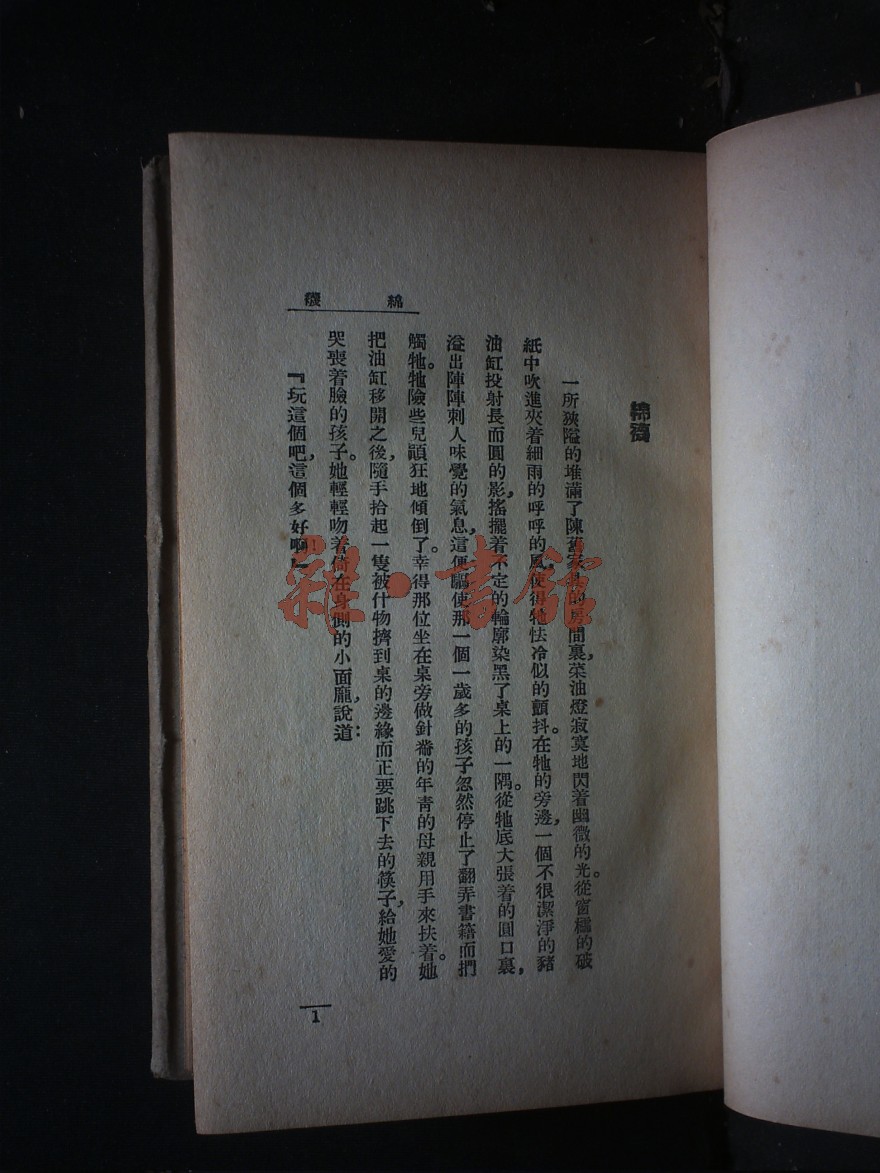 綿襖
一所狹隘的堆滿了陳舊家具的房間裏，菜油燈寂寞地閃着幽微的光。從窗櫺的破
紙中吹進夾着細雨的呼呼的風，使得牠怯冷似的顫抖。在牠的旁邊，一個不很潔淨的豬
油缸投射長而圓的影，搖擺着不定的輪廓染黑了桌上的一隅。從牠底大張着的圓口裏，
溢出陣陣刺人味覺的氣息，這便驅使那一個一歲多的孩子忽然停止了翻弄書籍而捫
觸牠。牠險些兒顛狂地傾倒了。幸得那位坐在桌旁做針黹的年青的母親用手來扶着。她
把油缸移開之後，隨手拾起一隻被什物擠到桌的邊緣而正要跳下去的筷子，給她愛的
哭喪着臉的孩子。她輕輕吻着倚在身側的小面龐，說道：
『玩這個吧，這個多好啊！』
綿襖
1
雜·書館